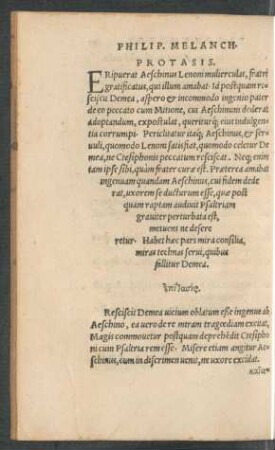 PHILIP. MELANCH.
PROTASIS.
ERipuerat Aeschinus Lenoni mulierculã, fratri
gratificatus, qui illum amabat. Id postquam re
sciscit Demea, aspero & incommodo ingenio pater
de eo peccato cum Mitione, cui Aeschinum dederat
adoptandum, expostulat, queriturq; eius indulgen
tia corrumpi. Periclitatur itaq; Aeschinus, & ser
uuli, quomodo Lenoni satisfiat, quomodo celetur De
mea, ne Ctesiphonis peccatum resciscat. Neq; enim
tam ipse sibi, quàm frater curæ est. Præterea amabat
ingenuam quandam Aeschinus, cui fidem dede
rat, uxorem se ducturum esse, quæ post
quam raptam audiuit Psaltriam
grauiter perturbata est,
metuens ne desere
retur. Habet hæc pars mira consilia,
miras technas serui, quibus
fallitur Demea.
ἐπίτασις.
Resciscit Demea uicium oblatum esse ingenuæ ab
Aeschino, ea uero de re miram tragœdiam excitat,
Magis commouetur postquam deprehẽdit Ctesipho
ni cum Psaltria rem esse. Misere etiam angitur Ae
schinus, cum in discrimen uenit, ne uxore excidat.